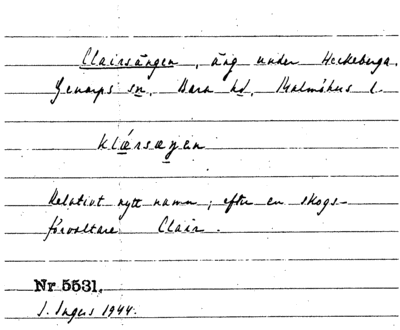 Clairsängen, äng under Heckeberga.
Genarps sn. Bara hd. Malmöhus l.
klærsæŋen
Relativt nytt namn; efter en skogs-
förvaltare Clair.
Nr 5531.
J. Ingers 1944.